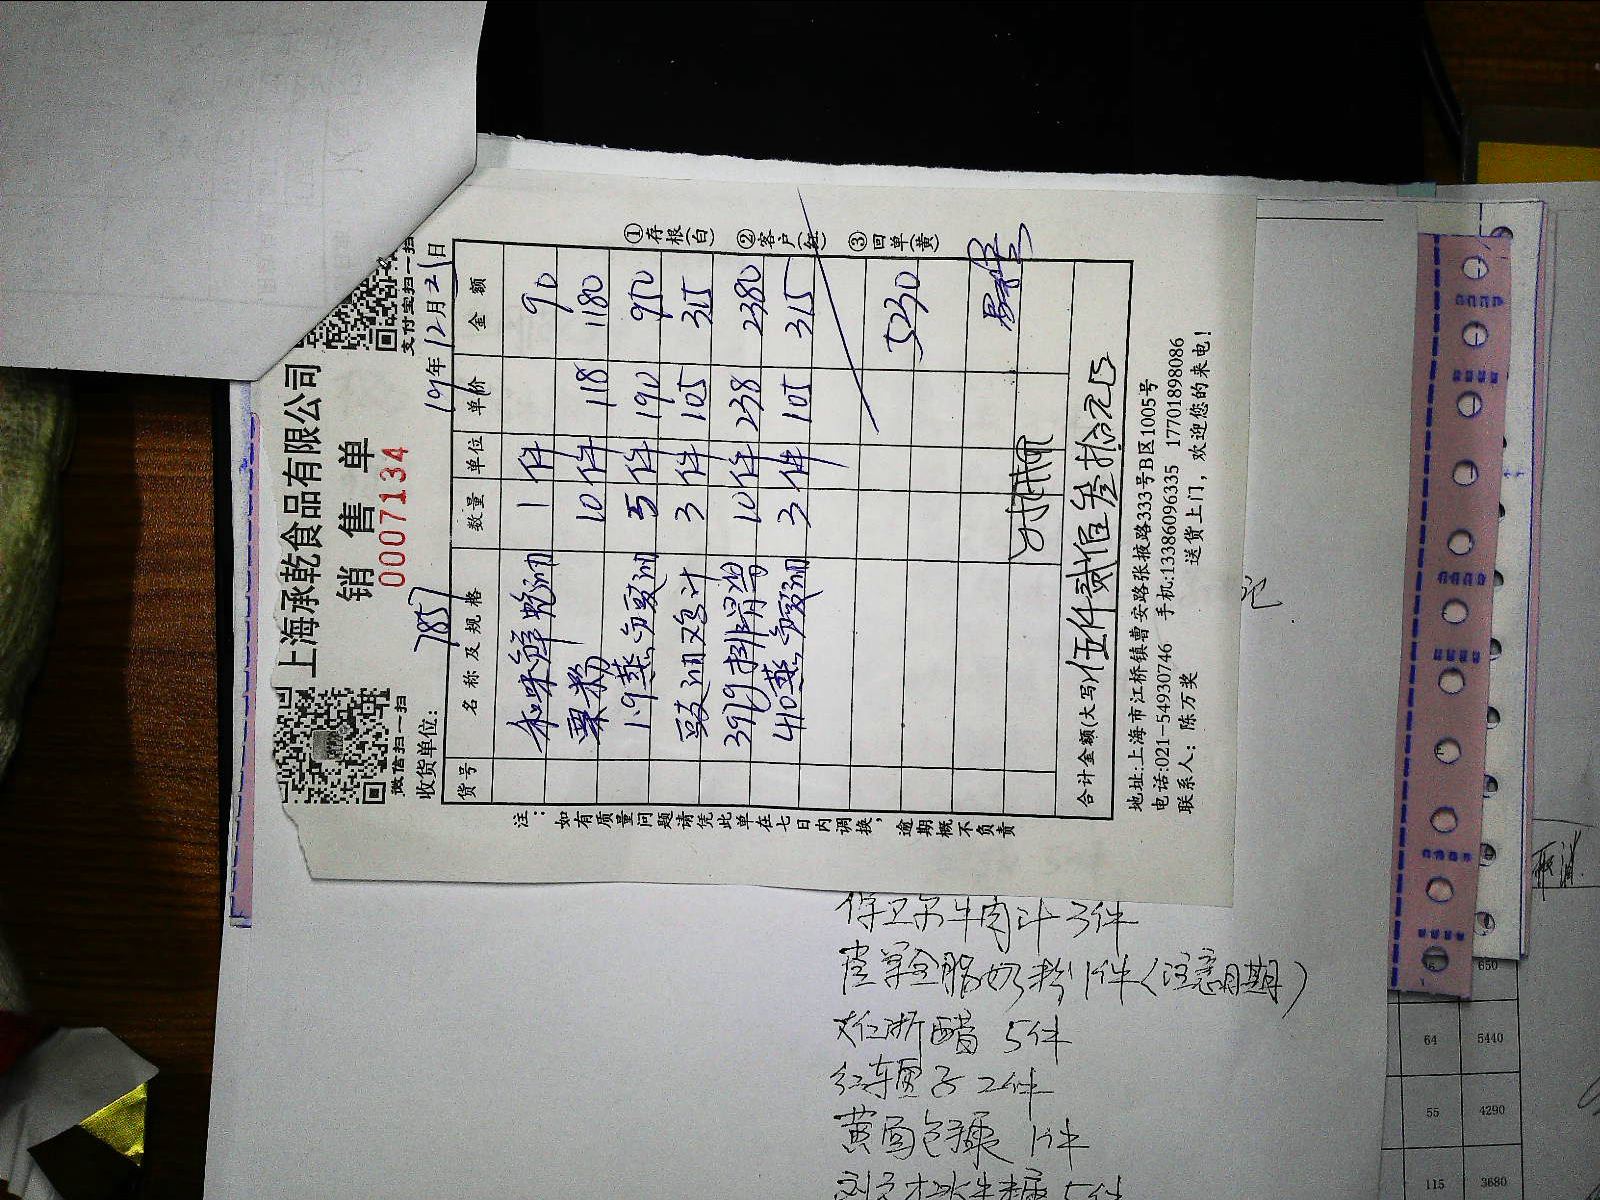 上海承乾食品有限公司
销售单
0007134
微信扫一扫
支付宝扫一扫
收货单位: 7857
19年12月21日
货号 名称及规格 数量 单位 单价 金额
和味鲜蚝油 1件 90
粟粉 10件 118 1180
1.9蒸鱼豉油 5件 190 950
豉油鸡汁 3件 105 315
397g 10件 238 2380
410蒸鱼豉油 3件 105 315
5230
合计金额(大写) 伍仟贰佰叁拾元正
地址:上海市江桥镇曹安路张掖路333号B区1005号
电话:021-54930746 手机:13386096335 17701898086
联系人: 陈万奖 送货上门, 欢迎您的来电!
注: 如有质量问题请凭此单在七日内调换, 逾期概不负责
①存根(白) ②客户(红) ③回单(黄)
保卫尔牛肉汁 3件
全脂奶粉 1件(注意日期)
大红浙醋 5件
5件
2件
黄面包糠 1件
5件
650
64 5440
55 4290
115 3680